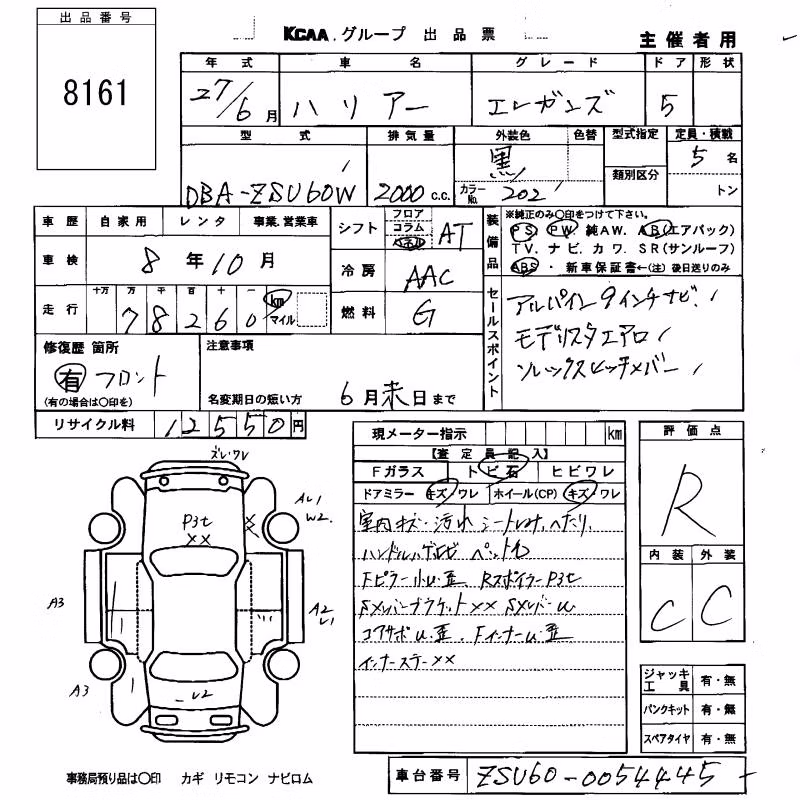 出品番号
8161
KCAA グループ 出品票
主催者用
年式 車名 グレード ドア 形状
27/6月 ハリアー エレガンス 5
型式 排気量 外装色 色替 型式指定 定員・積載
DBA-ZSU60W 2000 c.c. 黒 カラーNo. 202 類別区分 5名
トン
車歴 自家用 レンタ 事業.営業車
車検 8年10月
走行 十万 万 千 百 十 一
78260 km マイル
シフト フロア コラム パネル AT
冷房 AAC
燃料 G
装備品
※純正のみ○印をつけて下さい。
PS PW. 純AW. AB(エアバック)
TV. ナビ. カワ. SR(サンルーフ)
ABS ・ 新車保証書←(注) 後日送りのみ
セールスポイント
アルパイン9インチナビ
モデリスタエアロ
修復歴 箇所
有 フロント
(有の場合は○印を)
注意事項
名変期日の短い方 6月末日まで
リサイクル料 12550円
現メーター指示 km
【査定員記入】
Fガラス トビ石 ヒビワレ
ドアミラー キズ・ワレ ホイール(CP) キズ・ワレ
室内キズ・汚れ シート へたり
Fピラー小U歪 RスポイラーP3t
コアサポU歪. FインナーU歪
インナーステー××
評価点
R
内装 外装
C C
ズレ・ワレ
P3t
××
A1
W2.
A3
A2
A3
U2
ジャッキ工具 有・無
パンクキット 有・無
スペアタイヤ 有・無
事務局預り品は○印 カギ リモコン ナビロム
車台番号 ZSU60-0054445